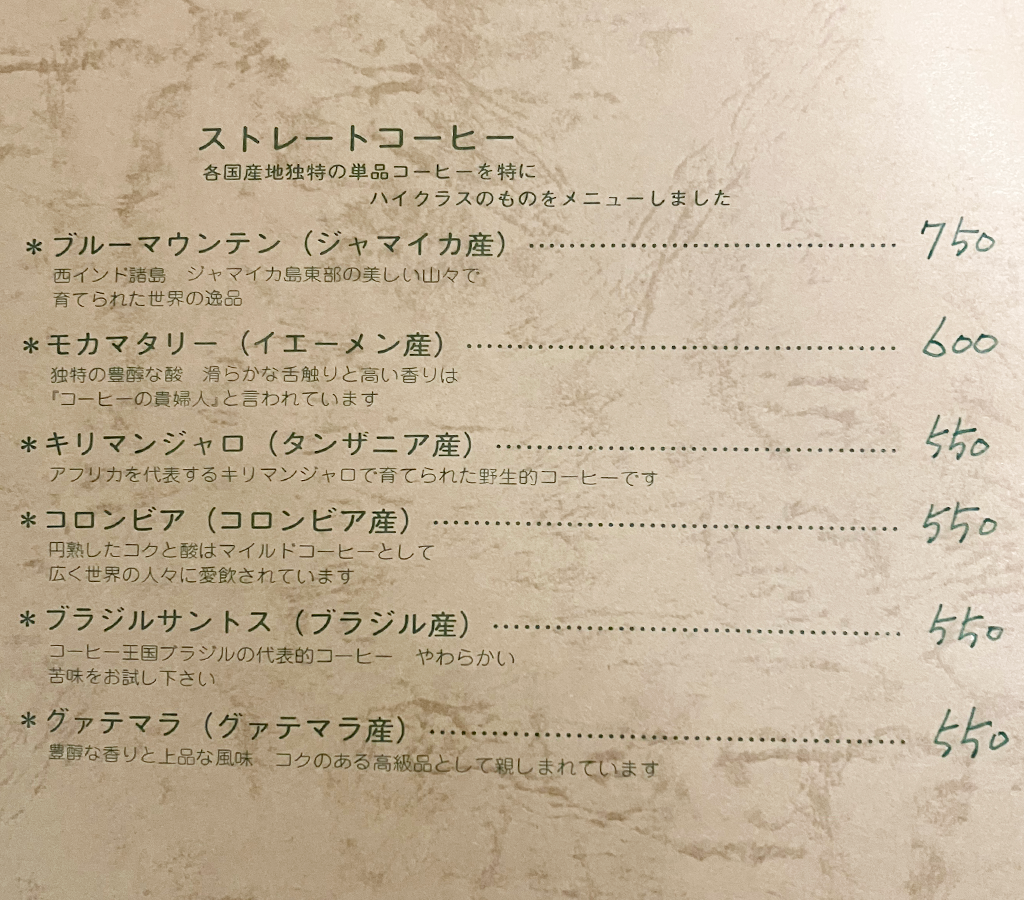 ストレートコーヒー
各国産地独特の単品コーヒーを特に
ハイクラスのものをメニューしました
＊ブルーマウンテン（ジャマイカ産）…………………………… 750
西インド諸島　ジャマイカ島東部の美しい山々で
育てられた世界の逸品
＊モカマタリー（イエーメン産）…………………………… 600
独特の豊醇な酸　滑らかな舌触りと高い香りは
『コーヒーの貴婦人』と言われています
＊キリマンジャロ（タンザニア産）…………………………… 550
アフリカを代表するキリマンジャロで育てられた野生的コーヒーです
＊コロンビア（コロンビア産）…………………………… 550
円熟したコクと酸はマイルドコーヒーとして
広く世界の人々に愛飲されています
＊ブラジルサントス（ブラジル産）…………………………… 550
コーヒー王国ブラジルの代表的コーヒー　やわらかい
苦味をお試し下さい
＊グァテマラ（グァテマラ産）…………………………… 550
豊醇な香りと上品な風味　コクのある高級品として親しまれています